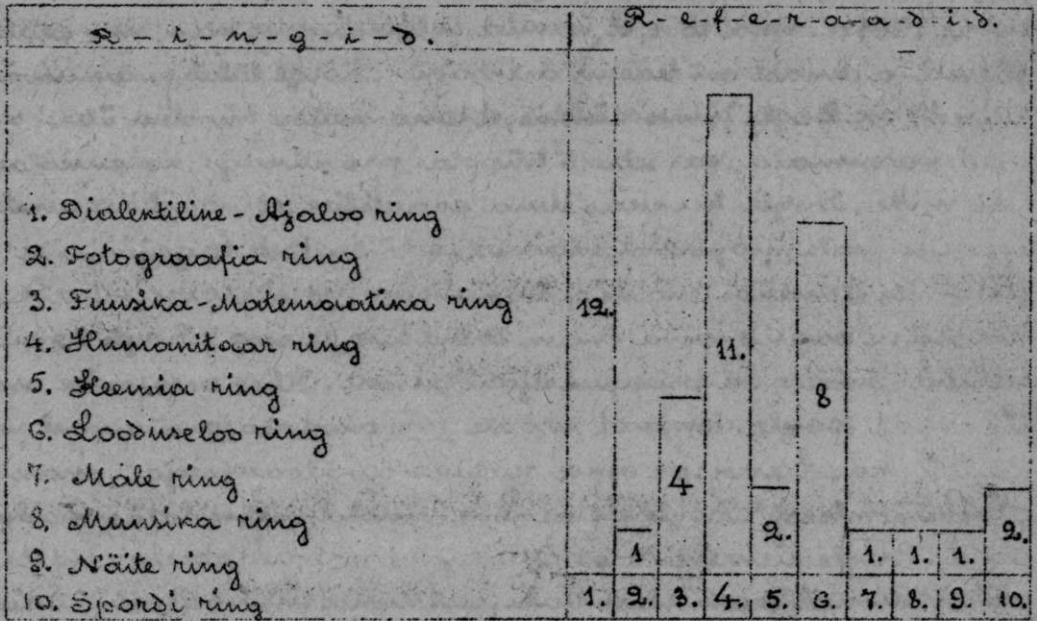 R-i-n-g-i-d.
R-e-f-e-r-a-a-d-i-d.
1. Dialektiline-Ajaloo ring
2. Fotograafia ring
3. Fuusika-Matemaatika ring
4. Humanitaar ring
5. Keemia ring
6. Looduseloo ring
7. Male ring
8. Muusika ring
9. Näite ring
10. Spordi ring
12.
1
4
11.
2.
8
1.
1.
1.
2.
1. 2. 3. 4. 5. 6. 7. 8. 9. 10.